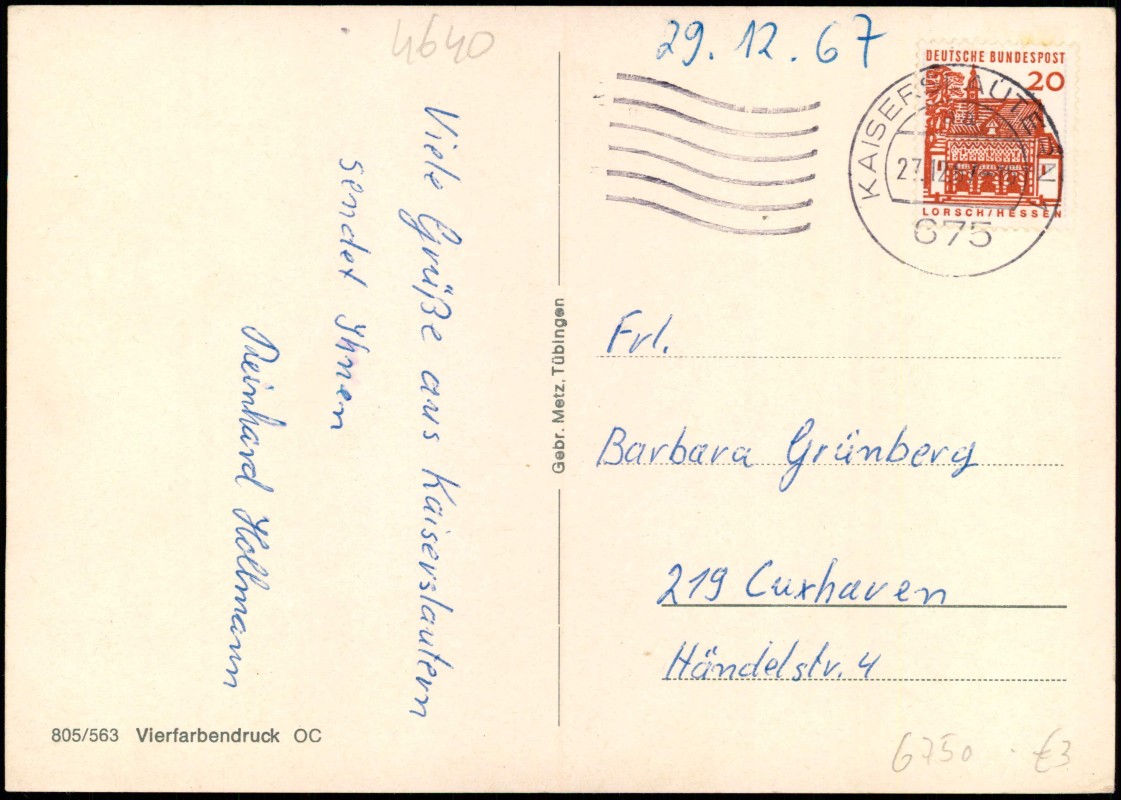 4640
29. 12. 67
DEUTSCHE BUNDESPOST
20
LORSCH/HESSEN
KAISERSLAUTERN
675
Viele Grüße aus Kaiserslautern
sendet Ihnen
Reinhard Hollmann
Gebr. Metz, Tübingen
Frl.
Barbara Grünberg
219 Cuxhaven
Händelstr. 4
805/563 Vierfarbendruck OC
6750 · €3